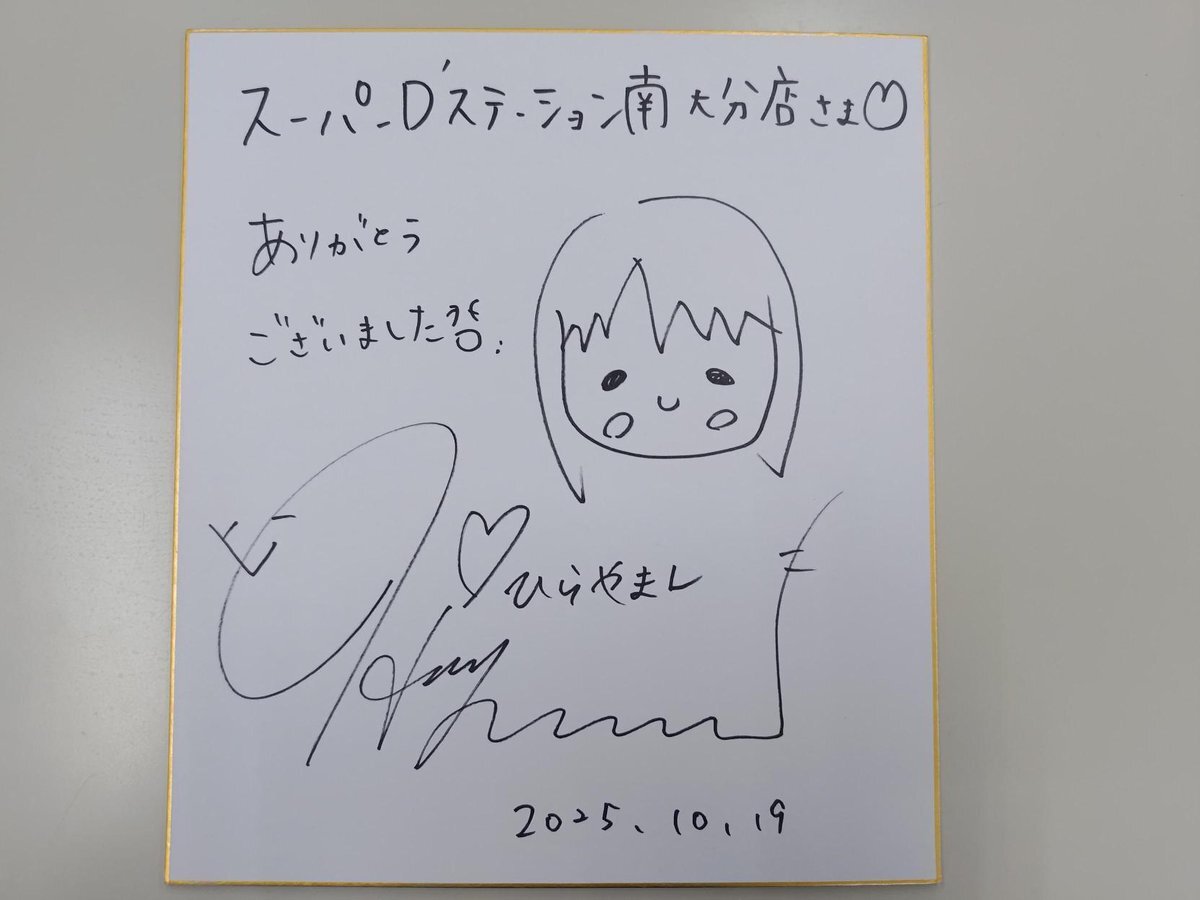 スーパーD'ステーション南大分店さま♡
ありがとう
ございました
♡ひらやまん
2025.10.19